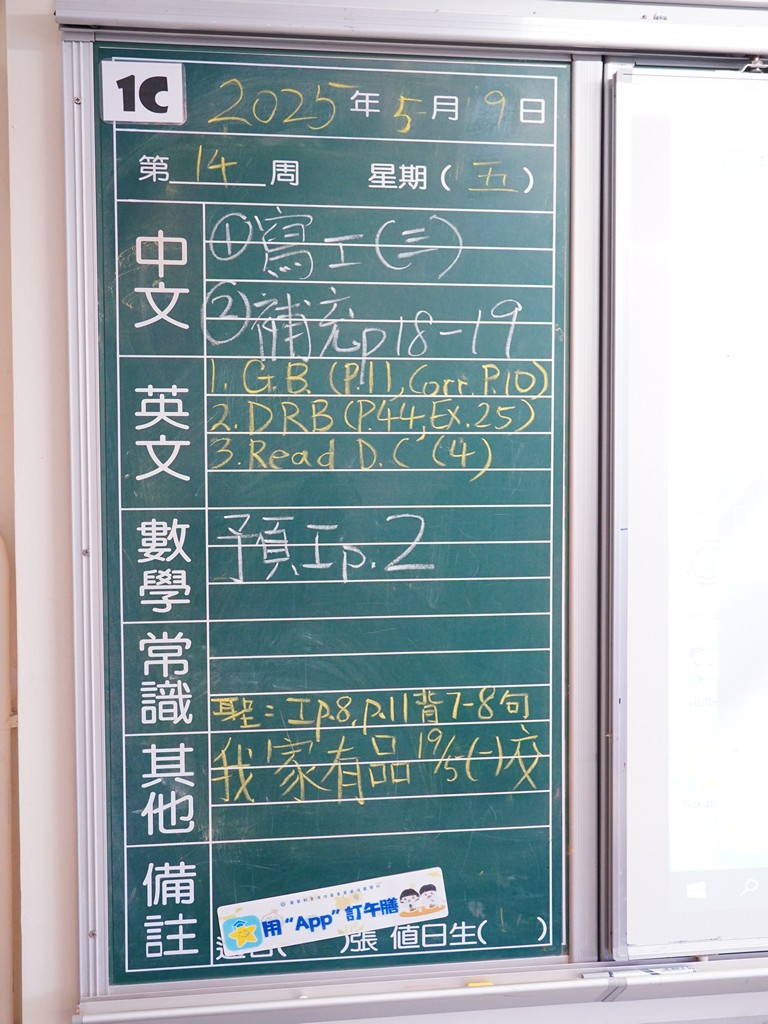 1C
2025年5月9日
第14周 星期(五)
中文
①寫工(三)
②補充p18-19
英文
1. G.B. (P.11, Corr. P.10)
2. DRB (P.44, Ex. 25)
3. Read D.C (4)
數學
預工p.2
常識
聖:工p.8, p.11背7-8句
其他
我家有品19/5(一)交
備註
用“App”訂午膳
張 值日生( )